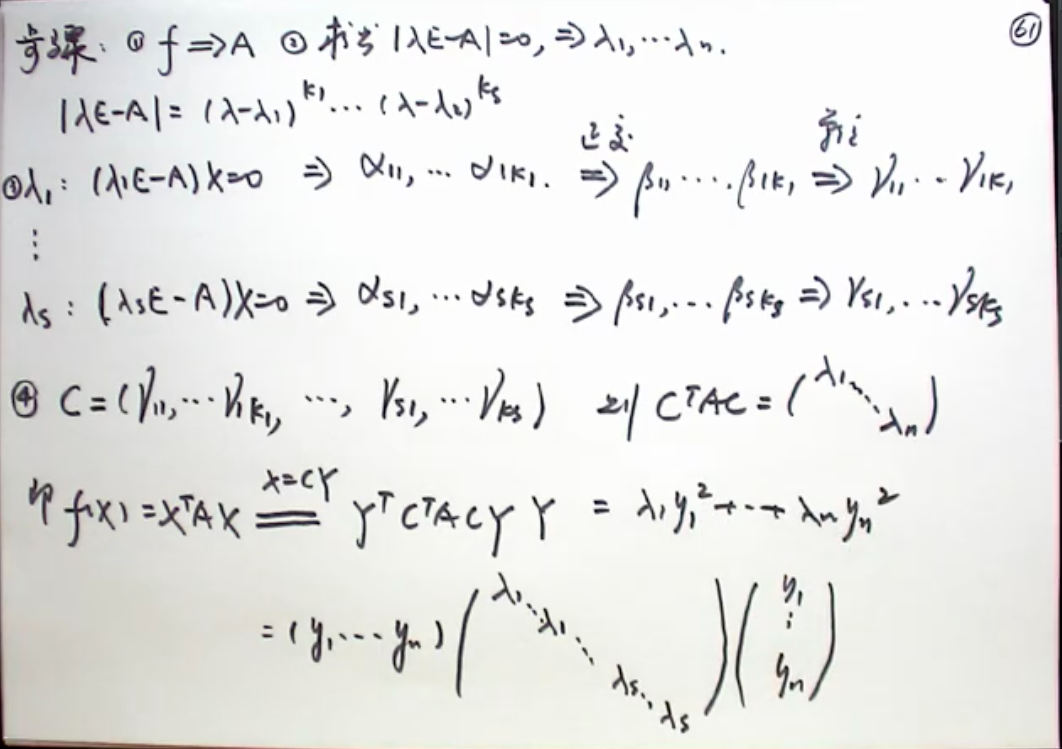 61
步骤: ① f⇒A ② 求出 |λE-A|=0, ⇒λ₁,⋯λn.
|λE-A|= (λ-λ₁)^k₁ ⋯ (λ-λ₂)^ks
正交 单位
③λ₁: (λ₁E-A)X=0 ⇒ α₁₁, ⋯ α₁k₁. ⇒ β₁₁⋯β₁k₁ ⇒ γ₁₁⋯γ₁k₁
⋮
λs: (λsE-A)X=0 ⇒ αs₁, ⋯αsks ⇒ βs₁,⋯βsks ⇒ γs₁,⋯γsks
④ C=(γ₁₁,⋯γ₁k₁, ⋯, γs₁,⋯γks) 则 CᵀAC = (λ₁ ⋱ λn)
即 f(X)=XᵀAX =(X=CY) YᵀCᵀACY Y = λ₁y₁²+⋯+λnyn²
=(y₁⋯yn) (λ₁⋱λ₁ ⋱ λs⋱λs) (y₁ ⋮ yn)